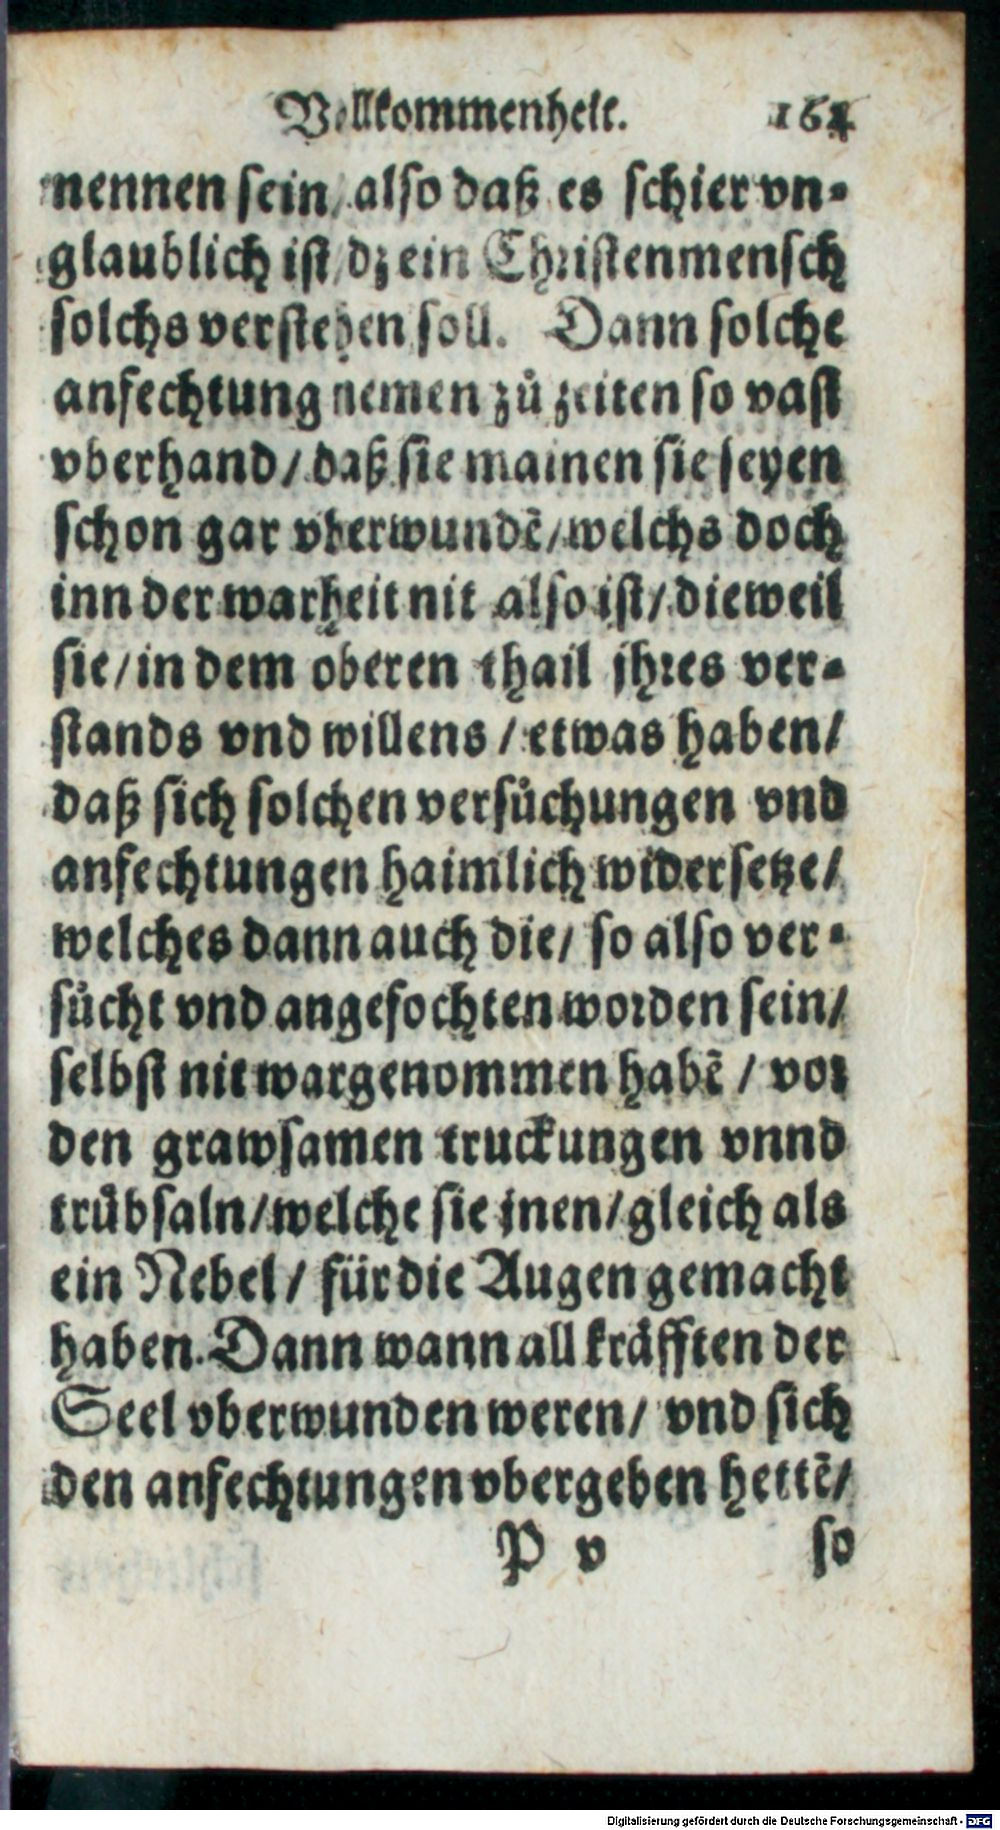 Vollkommenheit. 164
nennen sein/ also daß es schier vn-
glaublich ist/ dz ein Christenmensch
solchs verstehen soll. Dann solche
anfechtung nemen zů zeiten so vast
vberhand/ daß sie mainen sie seyen
schon gar vberwundē/ welchs doch
inn der warheit nit also ist/ dieweil
sie/ in dem oberen thail jhres ver-
stands vnd willens/ etwas haben/
daß sich solchen versůchungen vnd
anfechtungen haimlich widersetze/
welches dann auch die/ so also ver-
sůcht vnd angefochten worden sein/
selbst nit wargenommen habē/ vor
den grawsamen truckungen vnnd
trůbsaln/ welche sie jnen/ gleich als
ein Nebel/ für die Augen gemacht
haben. Dann wann all kräfften der
Seel vberwunden weren/ vnd sich
den anfechtungen vbergeben hettē/
P v so
Digitalisierung gefördert durch die Deutsche Forschungsgemeinschaft - DFG